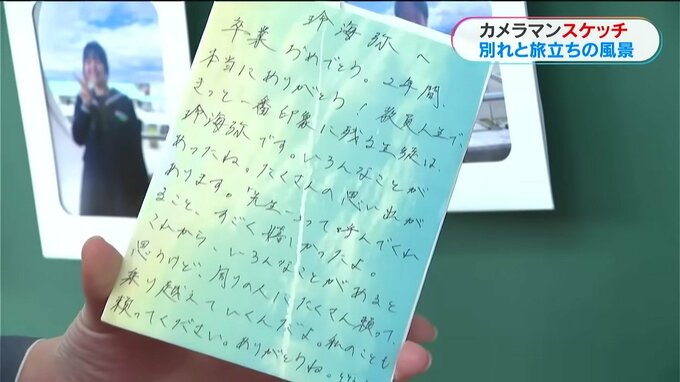 カメラマンスケッチ
別れと旅立ちの風景
玲海弥へ
卒業おめでとう。2年間、
本当にありがとう！教員人生で、
きっと一番印象に残る生徒は、
玲海弥です。いろんなことが
あったね。たくさんの思い出が
あります。"先生〜"って呼んでくれ
ること、すごく嬉しかったよ。
これから、いろんなことがあると
思うけど、周りの人にたくさん頼って、
乗り越えていくんだよ。私のことも
頼ってください。ありがとうね。